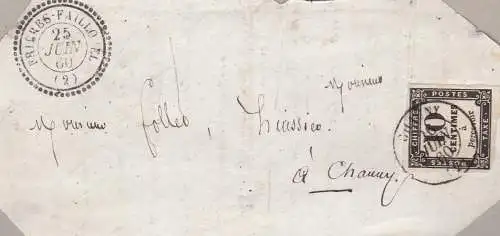 FRIERES-FAILLOUEL
25
JUIN
60
(2)
Monsieur
Monsieur Follet, huissier
à Chauny
CHIFFRE
POSTES
TAXE
10
CENTIMES
à
percevoir
POSTES